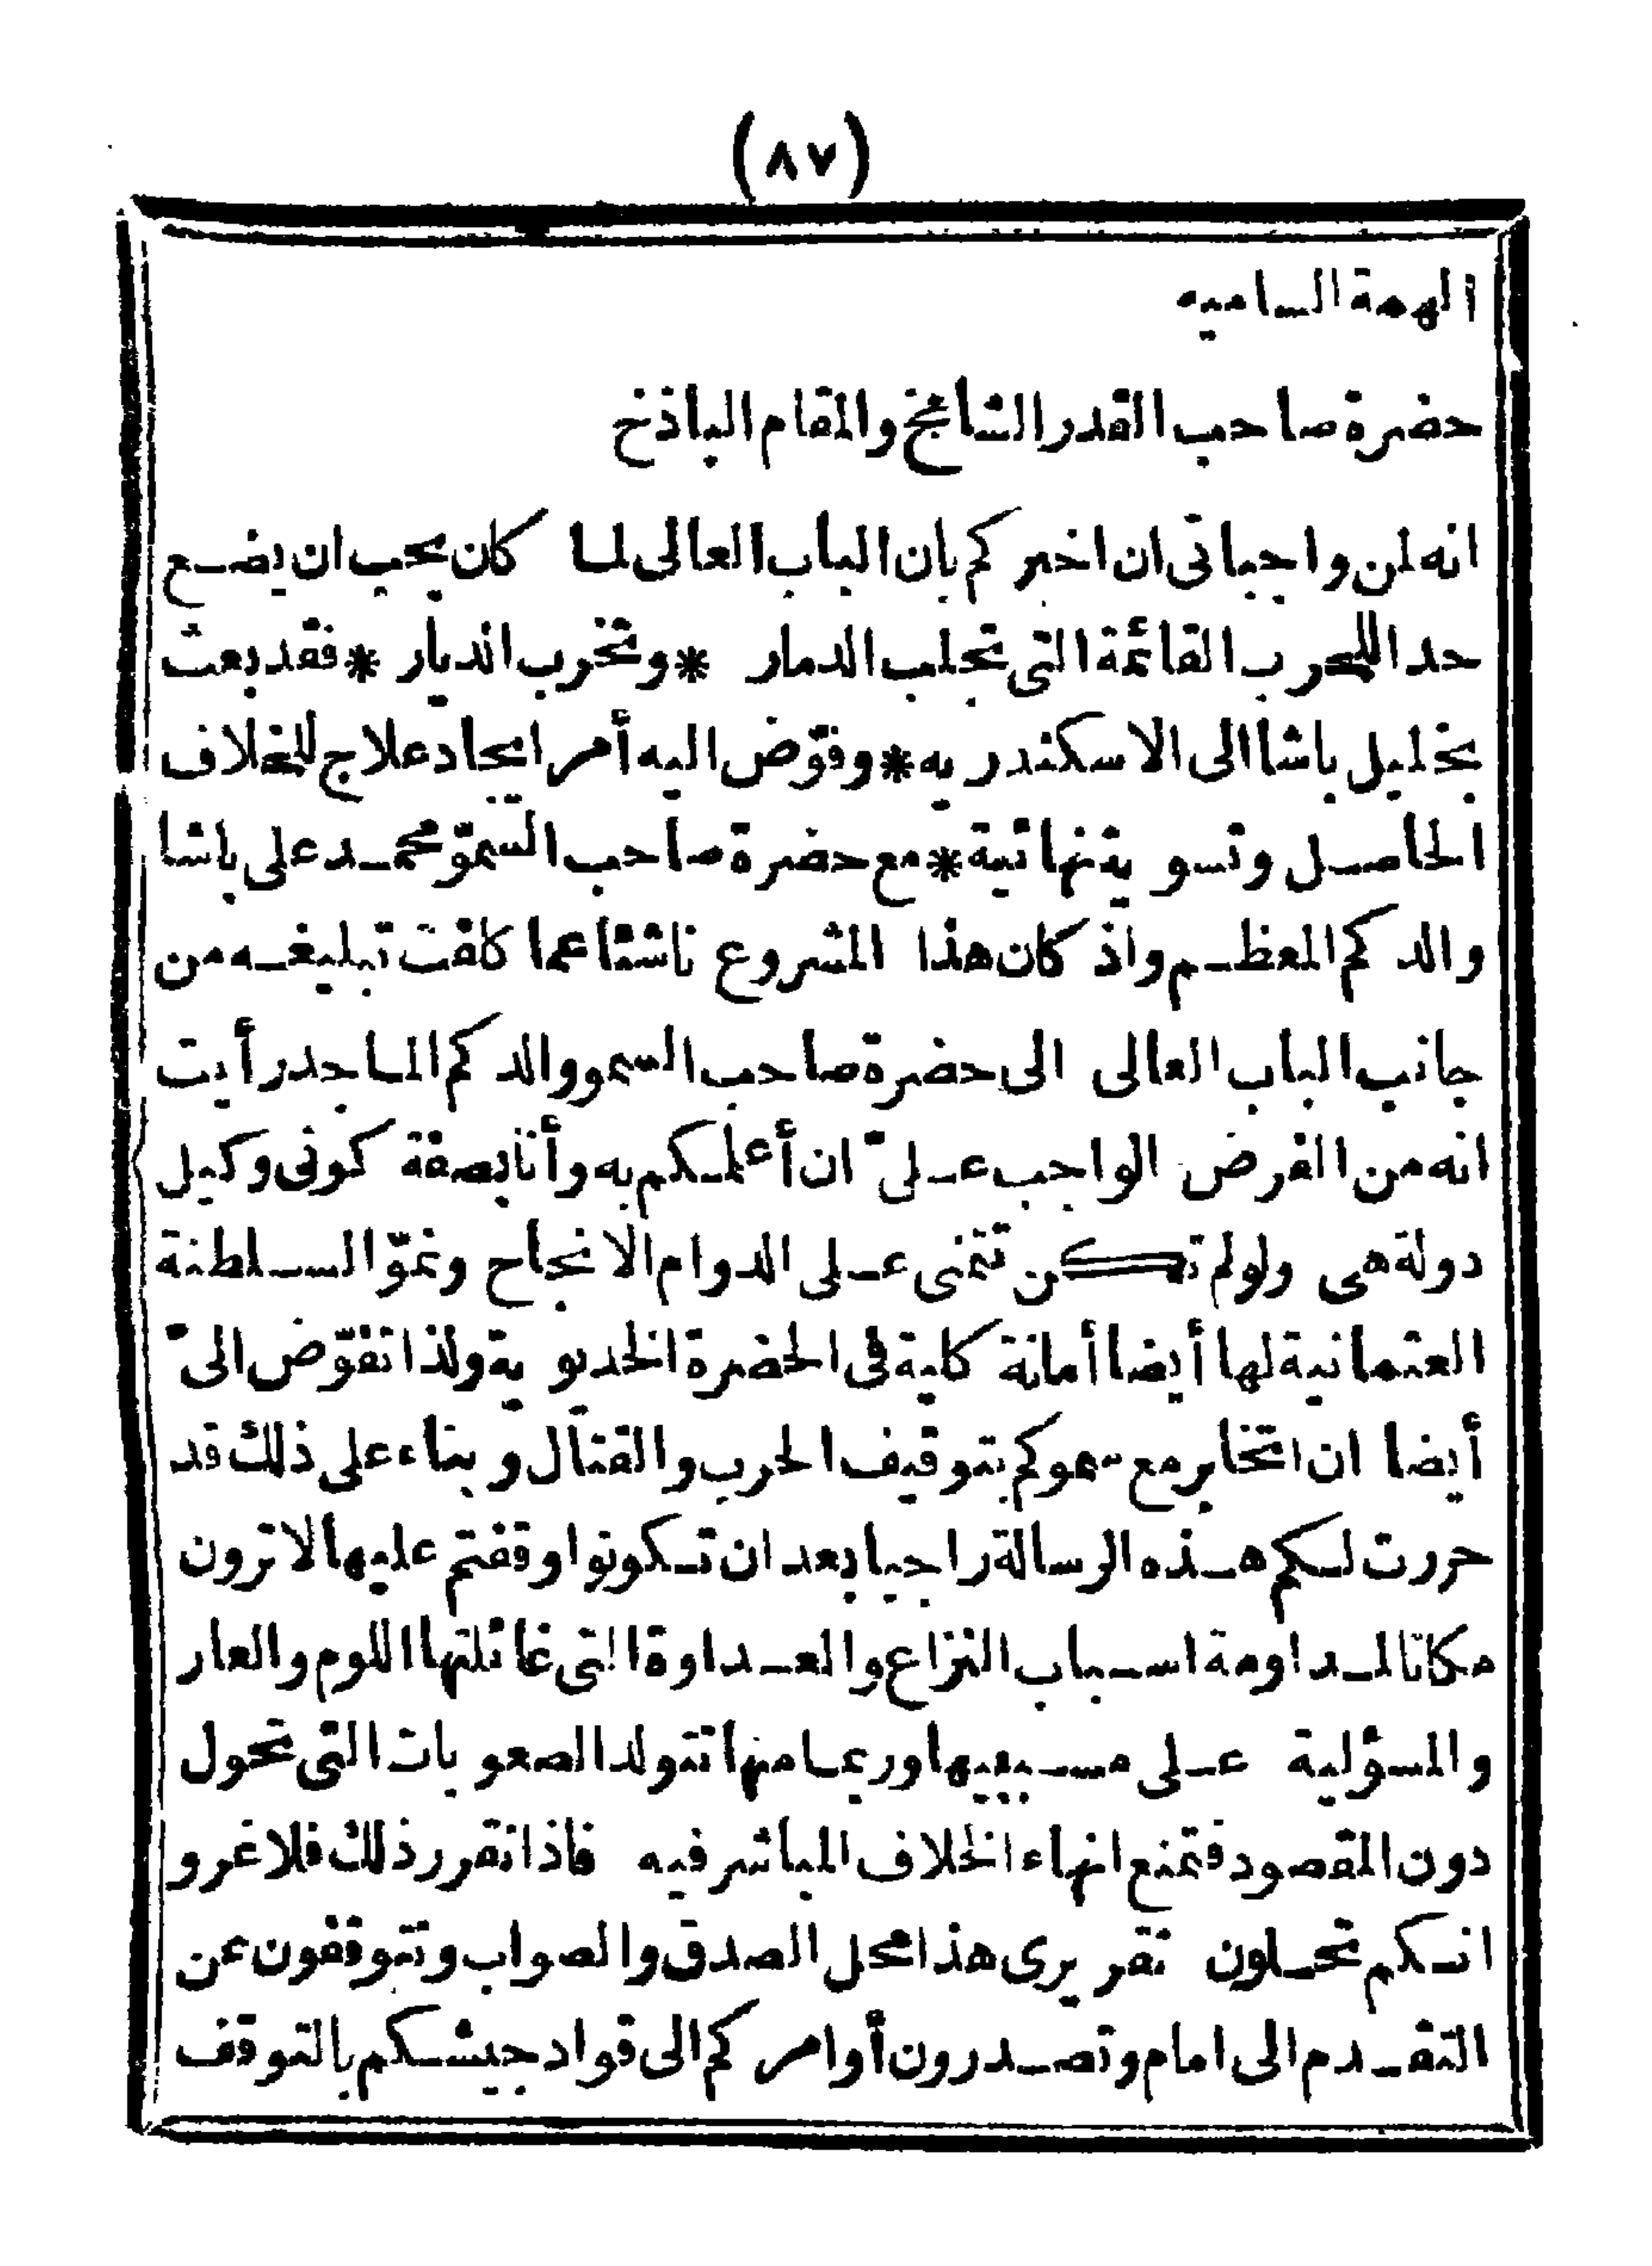 (٨٧)
الهمة الساميه
حضرة صاحب القدر الشامخ والمقام الباذخ
انه لمن واجباتى ان اخبركم بان الباب العالى لما كان يجب ان يضع
حدا للحرب القائمة التى تجلب الدمار * وتخرب الديار * فقد بعث
بخليل باشا الى الاسكندريه * وفوّض اليه أمر ايجاد علاج للخلاف
الحاصل وتسوية نهائية * مع حضرة صاحب السموّ محمد على باشا
والدكم المعظم واذ كان هذا المشروع ناشئا عما كلفت تبليغه من
جانب الباب العالى الى حضرة صاحب السمو والدكم الماجد رأيت
انه من الفرض الواجب علىّ ان أعلمكم به وأنا بصفة كونى وكيل
دولة هى ولو لم تكن تتمنى على الدوام الا نجاح ونموّ السلطنة
العثمانية لها أيضا أمانة كلية فى الحضرة الخديوية ولذا تفوّض الىّ
أيضا ان اتخابر مع سموكم بتوقيف الحرب والقتال وبناء على ذلك قد
حررت لكم هذه الرسالة راجيا بعد ان تكونوا وقفتم عليها ألا ترون
مكانا لمداومة اسباب النزاع والعداوة التى غائلتها اللوم والعار
والمسؤلية على مسببيها وربما منها تتولد الصعوبات التى تحول
دون المقصود فتمنع انهاء الخلاف المباشر فيه فاذا تقرر ذلك فلا غرو
انكم تحلون تقريرى هذا محل الصدق والصواب وتتوقفون عن
التقدم الى امام وتصدرون أوامركم الى قواد جيشكم بالتوقف